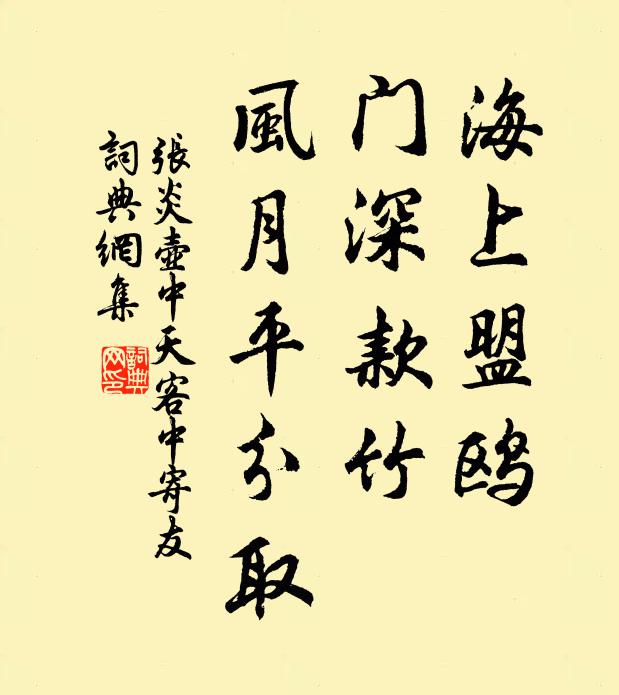 海上盟鸥
门深款竹
風月平分取
張炎壺中天客中寄友
詞典網集
詞典网印